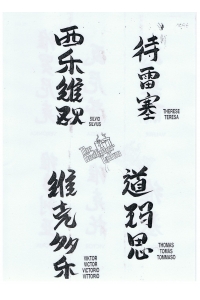 西乐维欧
SILVIO
SILVIUS
待雷塞
THERESE
TERESA
维克多乐
VIKTOR
VICTOR
VICTORIO
VITTORIO
道玛思
THOMAS
TOMAS
TOMMASO